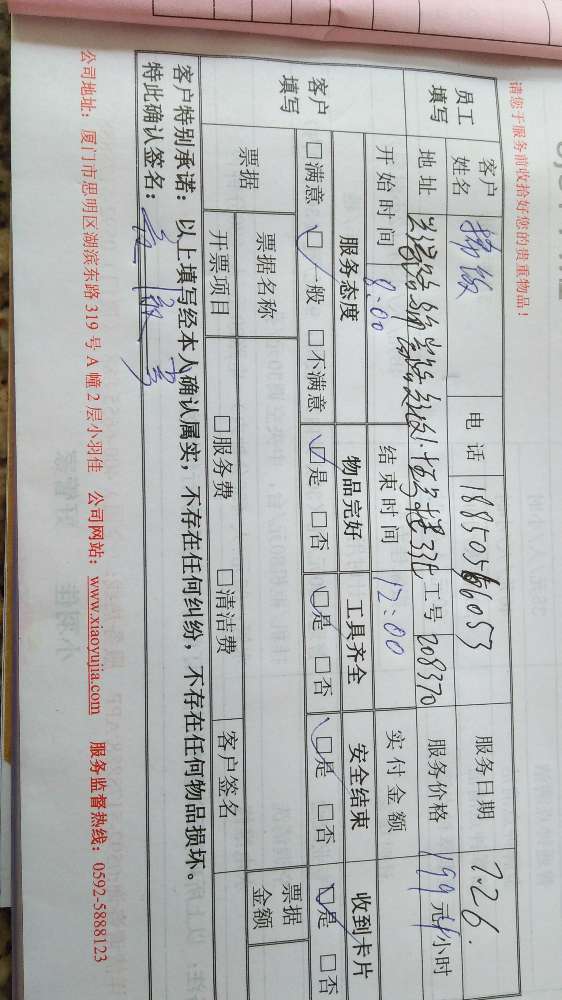 请您于服务前收拾好您的贵重物品！
员工填写
客户姓名 电话 服务日期 7.26.
地址 工号 208370 服务价格 199 元/4小时
开始时间 8:00 结束时间 12:00 实付金额
客户填写
服务态度 物品完好 工具齐全 安全结束 收到卡片
□满意 □一般 □不满意 □是 □否 □是 □否 □是 □否 □是 □否
票据 票据名称 客户签名 票据金额
开票项目 □服务费 □清洁费
客户特别承诺：以上填写经本人确认属实，不存在任何纠纷，不存在任何物品损坏。
特此确认签名：
公司地址：厦门市思明区湖滨东路 319 号 A 幢 2 层小羽佳 公司网站：www.xiaoyujia.com 服务监督热线：0592-5888123